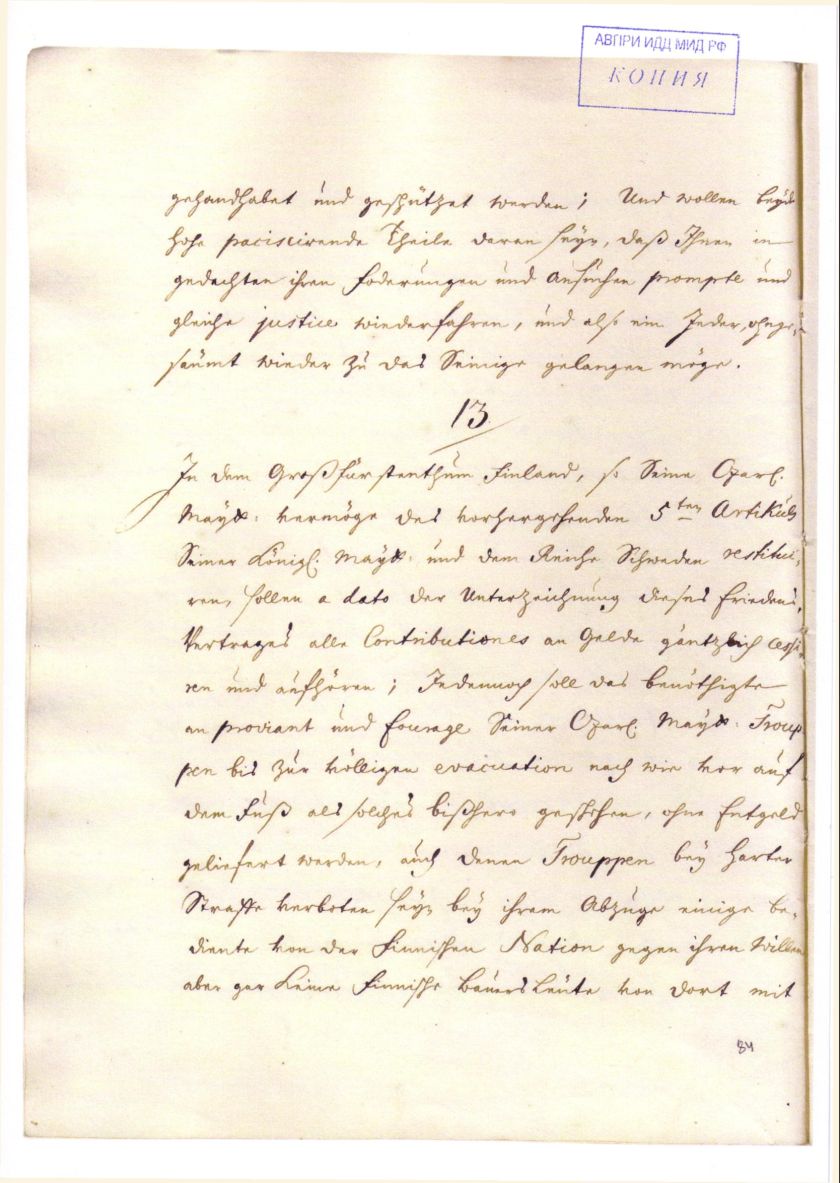 АВПРИ ИДД МИД РФ
КОПИЯ
gehandhabet und geschützet werden; Und wollen beyde
hohe paciscirende Theile daran seyn, daß Ihnen in
gedachten ihren foderungen und ansuchen prompte und
gleiche justice wiederfahren, und also ein Jeder, ohnge-
säumt wieder zu das Seinige gelangen möge.
13.
In dem Großfürstenthum Finland, so Seine Czarl.
Mayt: vermöge des vorhergehenden 5ten Artikuls
Seiner Königl. Mayt: und dem Reiche Schweden restitui-
ren, sollen a dato der Unterzeichnung dieses Friedens-
Vertrages alle Contributiones an Gelde gäntzlich cessi-
ren und aufhören; Jedennoch soll das benöthigte
an proviant und fourage Seiner Czarl. Mayt: Troup
pen bis zur völligen evacuation nach wie vor auf
dem Fuß als solches bißhero geschehen, ohne Entgeld
geliefert werden, auch denen Trouppen bey harter
Straffe verboten seyn bey ihrem Abzuge einige be-
diente von der Finnischen Nation gegen ihren Willen
aber gar keine Finnische bauers Leute von dort mit
84